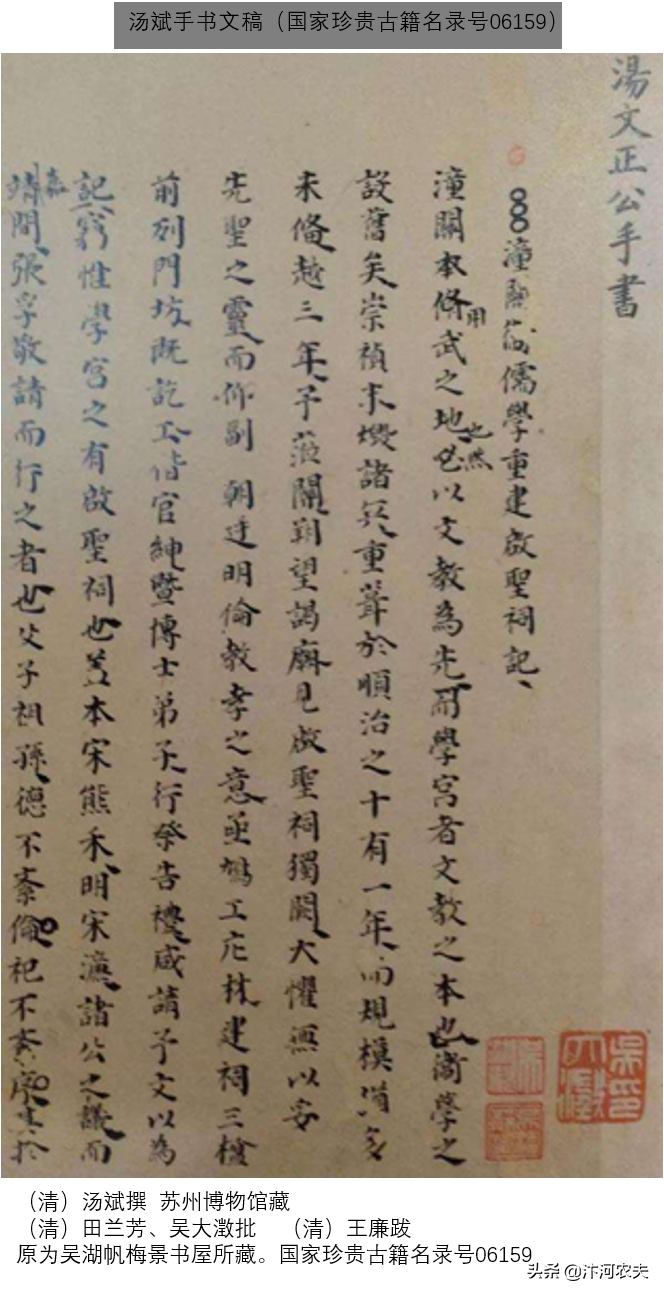 汤斌手书文稿（国家珍贵古籍名录号06159）
湯文正公手書
潼關衛儒學重建啟聖祠記
潼關本脩武之地用也然必以文教為先而學宮者文教之本也衛學之
設舊矣崇禎末燬諸兵重葺於順治之十有一年而規模尚多
未備越三年予蒞關朔望謁廟見啟聖祠獨闕大懼無以安
先聖之靈而仰副 朝廷明倫教孝之意亟鳩工庀材建祠三楹
前列門坊既訖工偕官紳暨博士弟子行祭告禮咸請予文以為
記竊惟學宮之有啟聖祠也蓋本宋熊禾明宋濂諸公之議而
嘉靖間張孚敬請而行之者也父子祖孫德不紊倫祀不紊序於
吳印大澂
（清）汤斌撰 苏州博物馆藏
（清）田兰芳、吴大澂批 （清）王廉跋
原为吴湖帆梅景书屋所藏。国家珍贵古籍名录号06159
头条 @汴河农夫